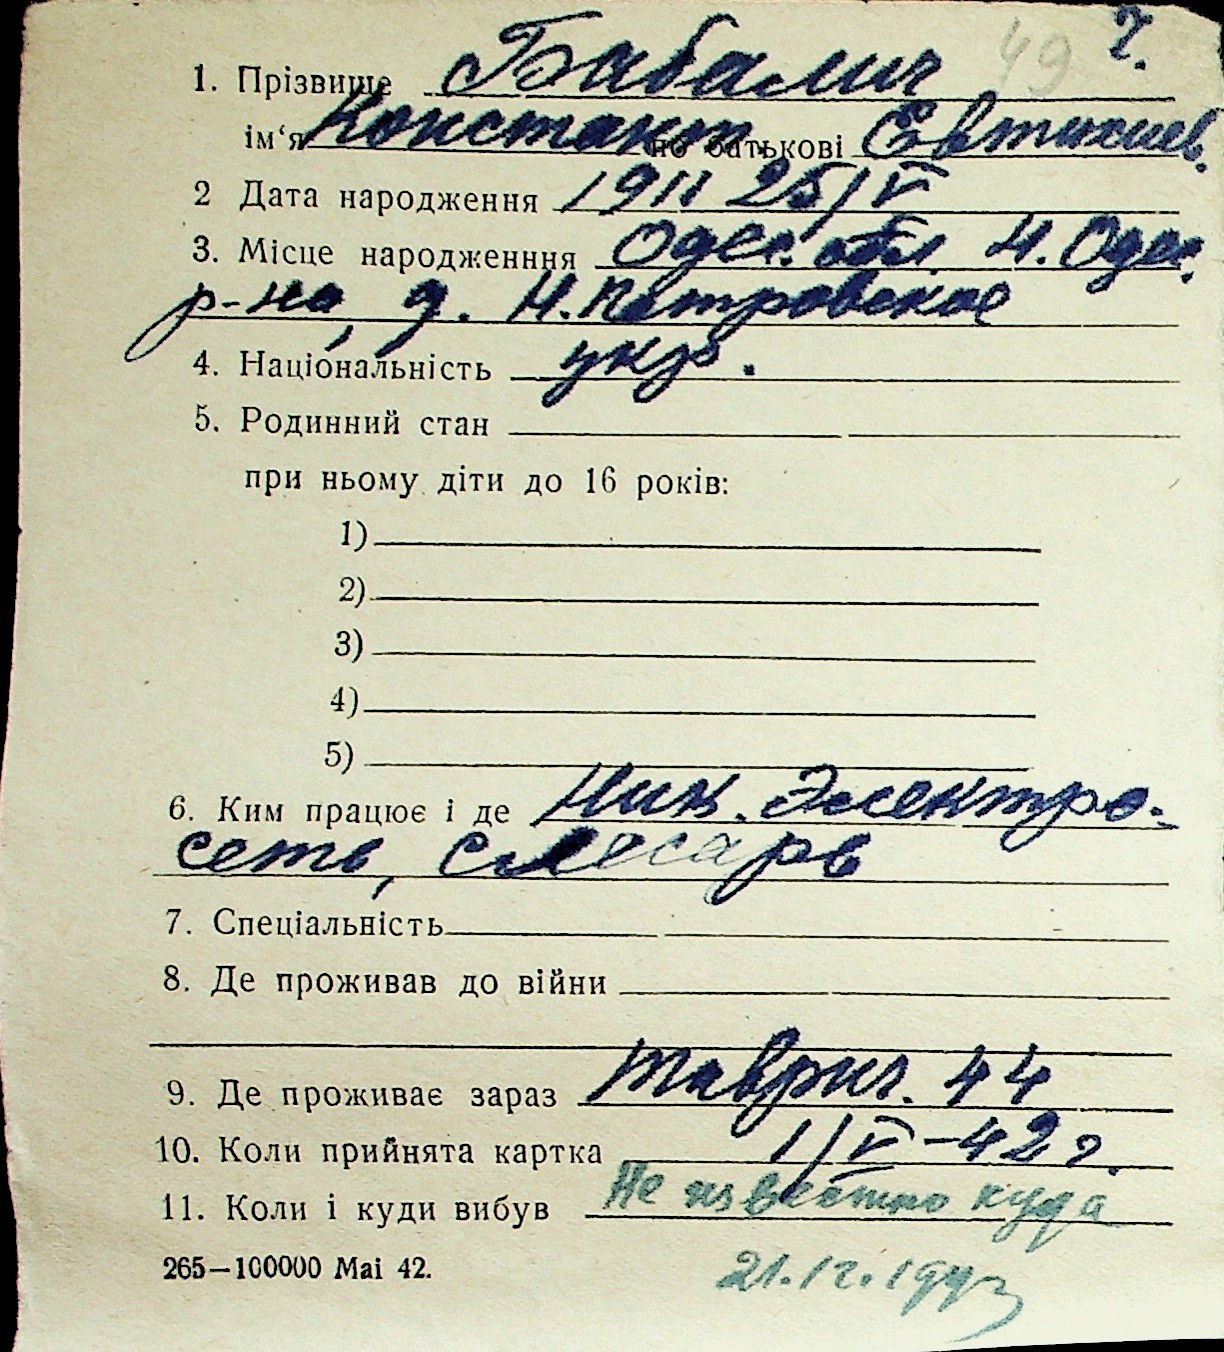 49 г.
1. Прізвище Бабалич
ім‘я Констант. по батькові Евтихиев.
2 Дата народження 1911 25/V
3. Місце народженння Одес. обл. Н. Одес.
р-на, д. Н. Петровское
4. Національність укр.
5. Родинний стан
при ньому діти до 16 років:
1)
2)
3)
4)
5)
6. Ким працює і де Ник. Электро-
сеть, слесарь
7. Спеціальність
8. Де проживав до війни
9. Де проживає зараз Таврич. 44
10. Коли прийнята картка 1/V-42 г.
11. Коли і куди вибув Не известно куда
265—100000 Mai 42. 21.12.1943